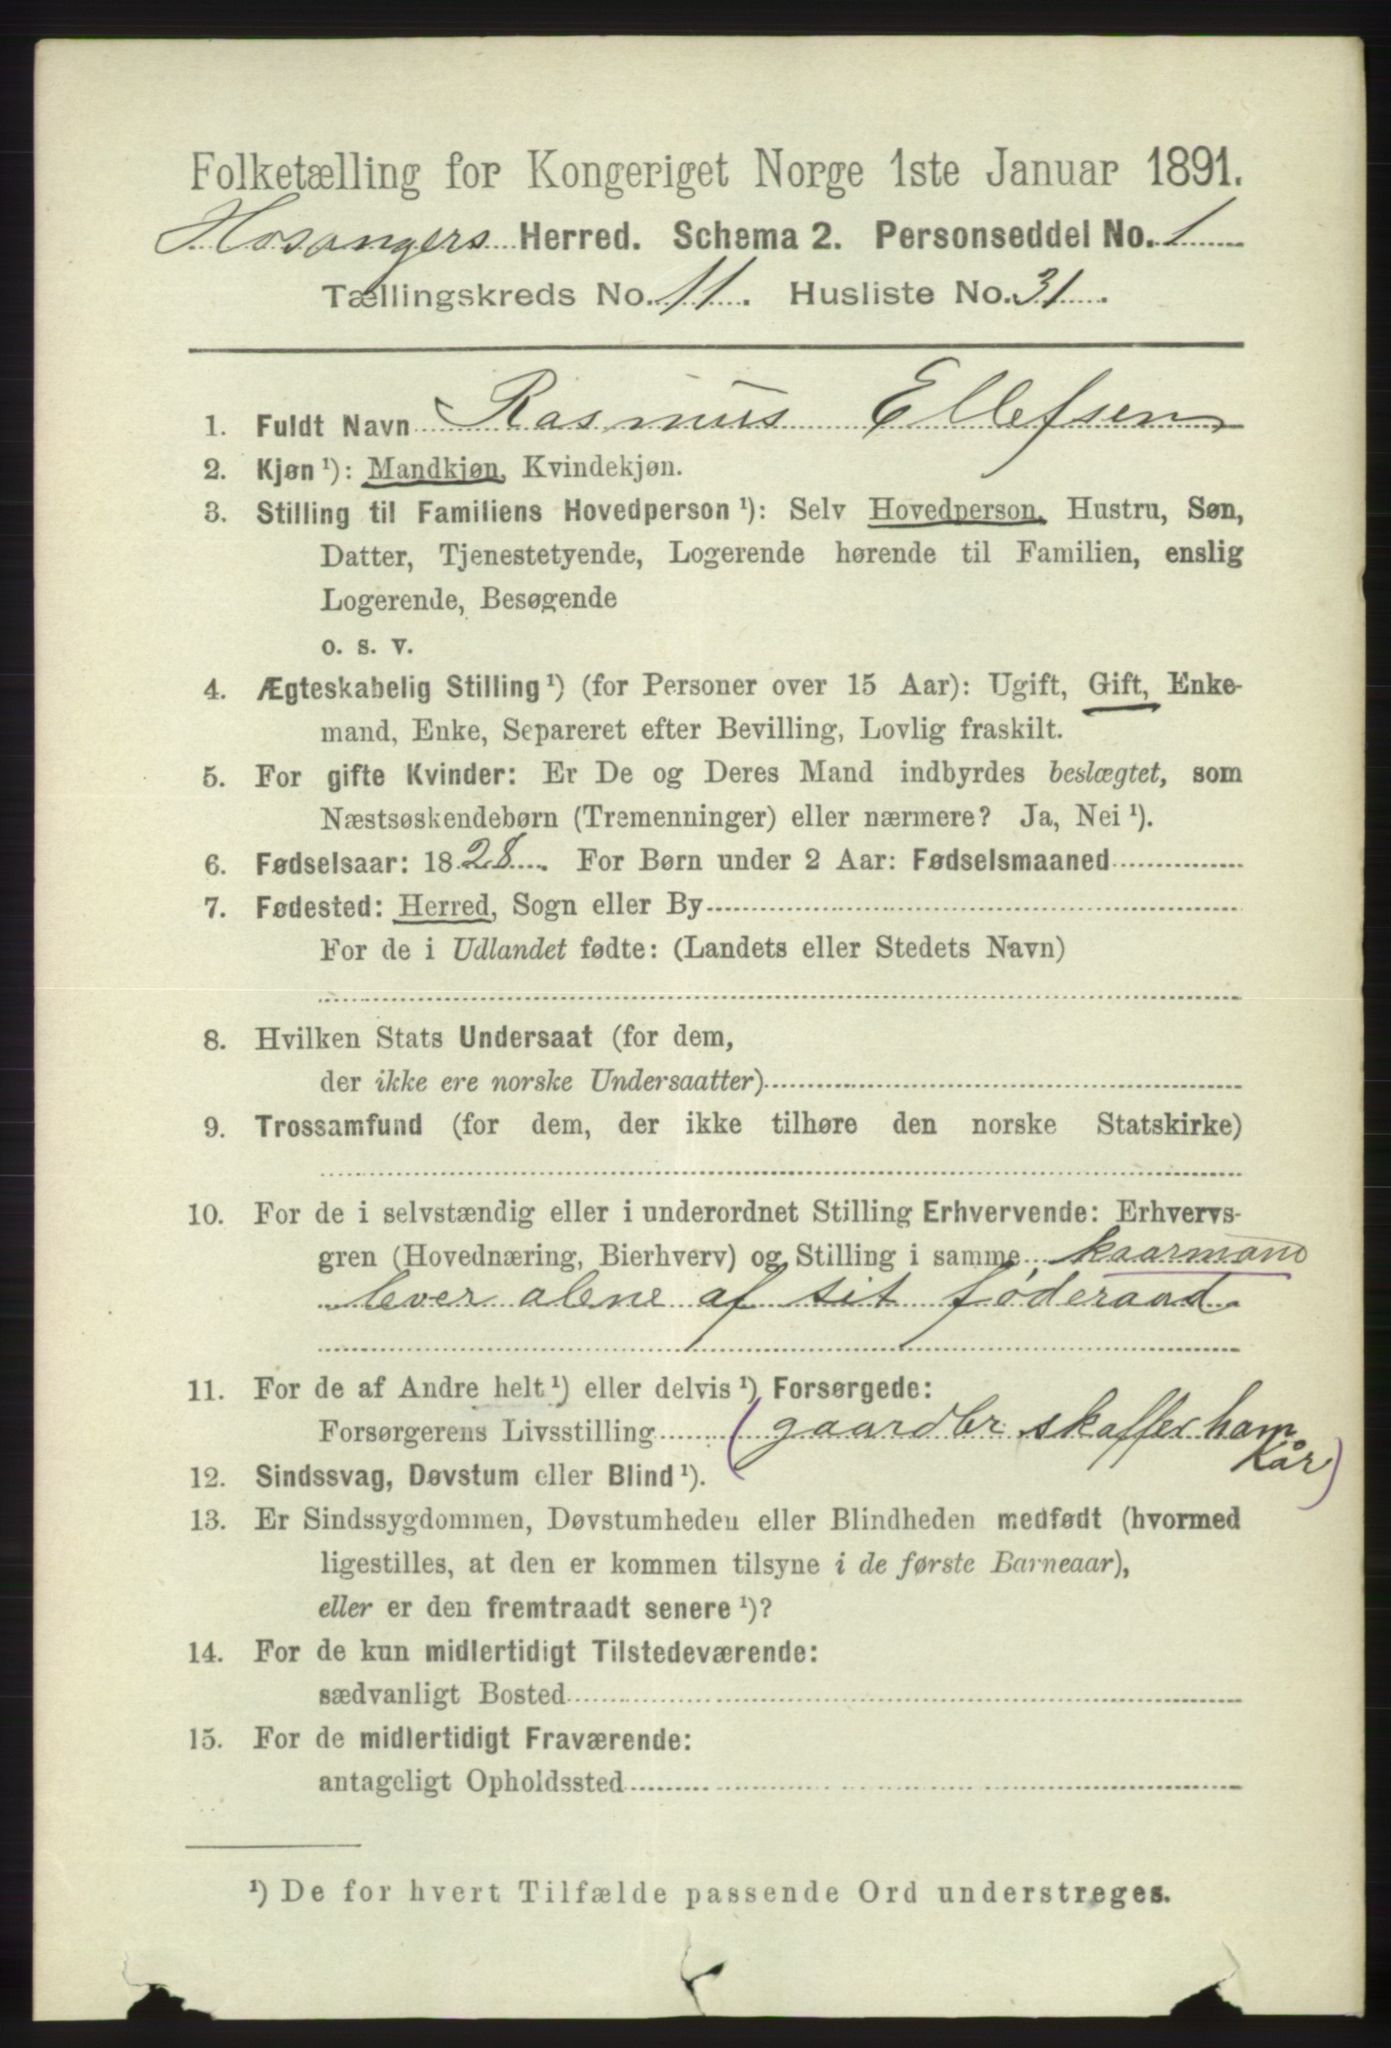 Folketælling for Kongeriget Norge 1ste Januar 1891.
Hosangers Herred. Schema 2. Personseddel No. 1
Tællingskreds No. 11. Husliste No. 31.
1. Fuldt Navn Rasmus Ellefsen
2. Kjøn ¹): Mandkjøn, Kvindekjøn.
3. Stilling til Familiens Hovedperson ¹): Selv Hovedperson, Hustru, Søn,
Datter, Tjenestetyende, Logerende hørende til Familien, enslig
Logerende, Besøgende
o. s. v.
4. Ægteskabelig Stilling ¹) (for Personer over 15 Aar): Ugift, Gift, Enke-
mand, Enke, Separeret efter Bevilling, Lovlig fraskilt.
5. For gifte Kvinder: Er De og Deres Mand indbyrdes beslægtet, som
Næstsøskendebørn (Tremenninger) eller nærmere? Ja, Nei ¹).
6. Fødselsaar: 1828. For Børn under 2 Aar: Fødselsmaaned
7. Fødested: Herred, Sogn eller By
For de i Udlandet fødte: (Landets eller Stedets Navn)
8. Hvilken Stats Undersaat (for dem,
der ikke ere norske Undersaatter)
9. Trossamfund (for dem, der ikke tilhøre den norske Statskirke)
10. For de i selvstændig eller i underordnet Stilling Erhvervende: Erhvervs-
gren (Hovednæring, Bierhverv) og Stilling i samme kaarmand
lever alene af sit føderaad.
11. For de af Andre helt ¹) eller delvis ¹) Forsørgede:
Forsørgerens Livsstilling (gaardbr skaffer ham
kår)
12. Sindssvag, Døvstum eller Blind ¹).
13. Er Sindssygdommen, Døvstumheden eller Blindheden medfødt (hvormed
ligestilles, at den er kommen tilsyne i de første Barneaar),
eller er den fremtraadt senere ¹)?
14. For de kun midlertidigt Tilstedeværende:
sædvanligt Bosted
15. For de midlertidigt Fraværende:
antageligt Opholdssted
¹) De for hvert Tilfælde passende Ord understreges.